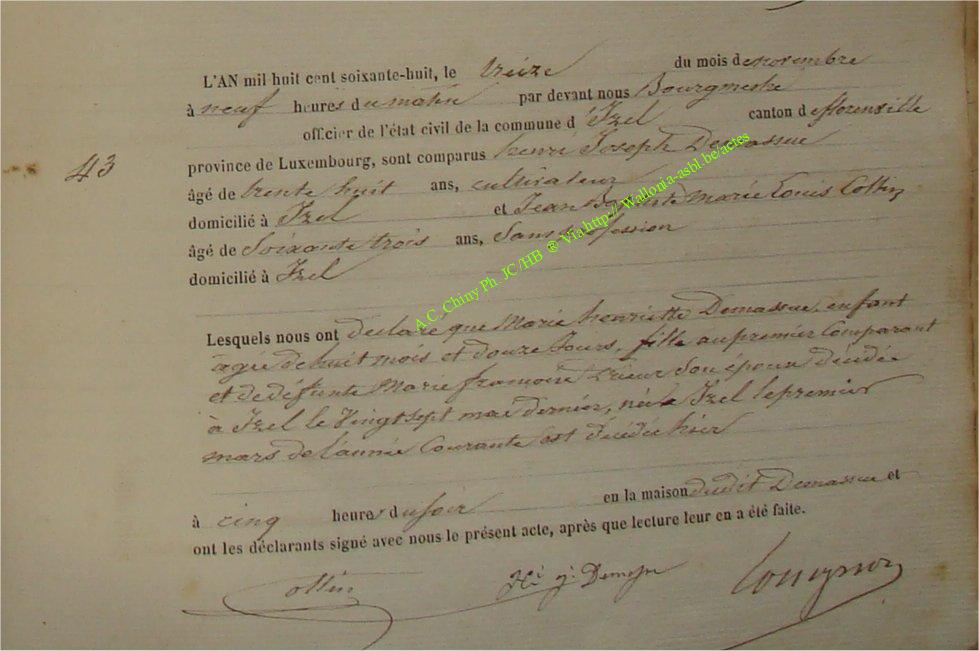 L'AN mil huit cent soixante-huit, le treize du mois de novembre
à neuf heures du matin par devant nous Bourgmestre
officier de l'état civil de la commune d'Izel canton de florenville
43
province de Luxembourg, sont comparus henri Joseph Demassue
âgé de trente huit ans, cultivateur
domicilié à Izel et Jean Baptiste Marie Louis Collin
âgé de Soixante trois ans, Sans profession
domicilié à Izel
A.C. Chiny Ph. JC/HB ® Via http:// Wallonia-asbl.be/actes
Lesquels nous ont déclaré que Marie henriette Demassue, enfant
agée de huit mois et douze Jours, fille au premier Comparant
et de défunte Marie françoise Son épouse décédée
à Izel le Vingt Sept mai dernier, née à Izel le premier
mars de l'année Courante est décédée hier
à cinq heures du soir en la maison dudit Demassue et
ont les déclarants signé avec nous le présent acte, après que lecture leur en a été faite.
Collin